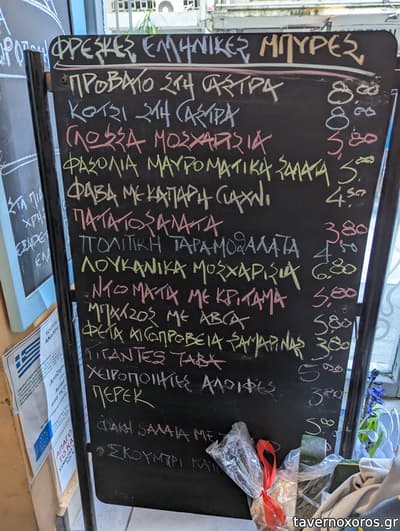 ΦΡΕΣΚΕΣ ΕΛΛΗΝΙΚΕΣ ΜΠΥΡΕΣ
ΠΡΟΒΑΤΟ ΣΤΗ ΓΑΣΤΡΑ 8.00
ΚΟΤΣΙ ΣΤΗ ΓΑΣΤΡΑ 8.00
ΓΛΩΣΣΑ ΜΟΣΧΑΡΙΣΙΑ 5,80
ΦΑΣΟΛΙΑ ΜΑΥΡΟΜΑΤΙΚΑ ΣΑΛΑΤΑ 5.00
ΦΑΒΑ ΜΕ ΚΑΠΑΡΗ ΓΙΑΧΝΙ 4.50
ΠΑΤΑΤΟΣΑΛΑΤΑ 3,80
ΠΟΛΙΤΙΚΗ ΤΑΡΑΜΟΣΑΛΑΤΑ 4,50
ΛΟΥΚΑΝΙΚΑ ΜΟΣΧΑΡΙΣΙΑ 6.80
ΝΤΟΜΑΤΑ ΜΕ ΚΡΙΤΑΜΑ 5,80
ΜΠΑΤΖΟΣ ΜΕ ΑΒΓΑ 5,80
ΦΕΤΑ ΑΙΓΟΠΡΟΒΕΙΑ ΣΑΜΑΡΙΝΑΣ 3,80
ΓΙΓΑΝΤΕΣ ΤΑΒΑ
ΧΕΙΡΟΠΟΙΗΤΕΣ ΑΛΟΙΦΕΣ
ΠΕΡΕΚ
ΦΑΚΗ ΣΑΛΑΤΑ ΜΕ
ΣΚΟΥΜΠΡΙ
tavernoxoros.gr